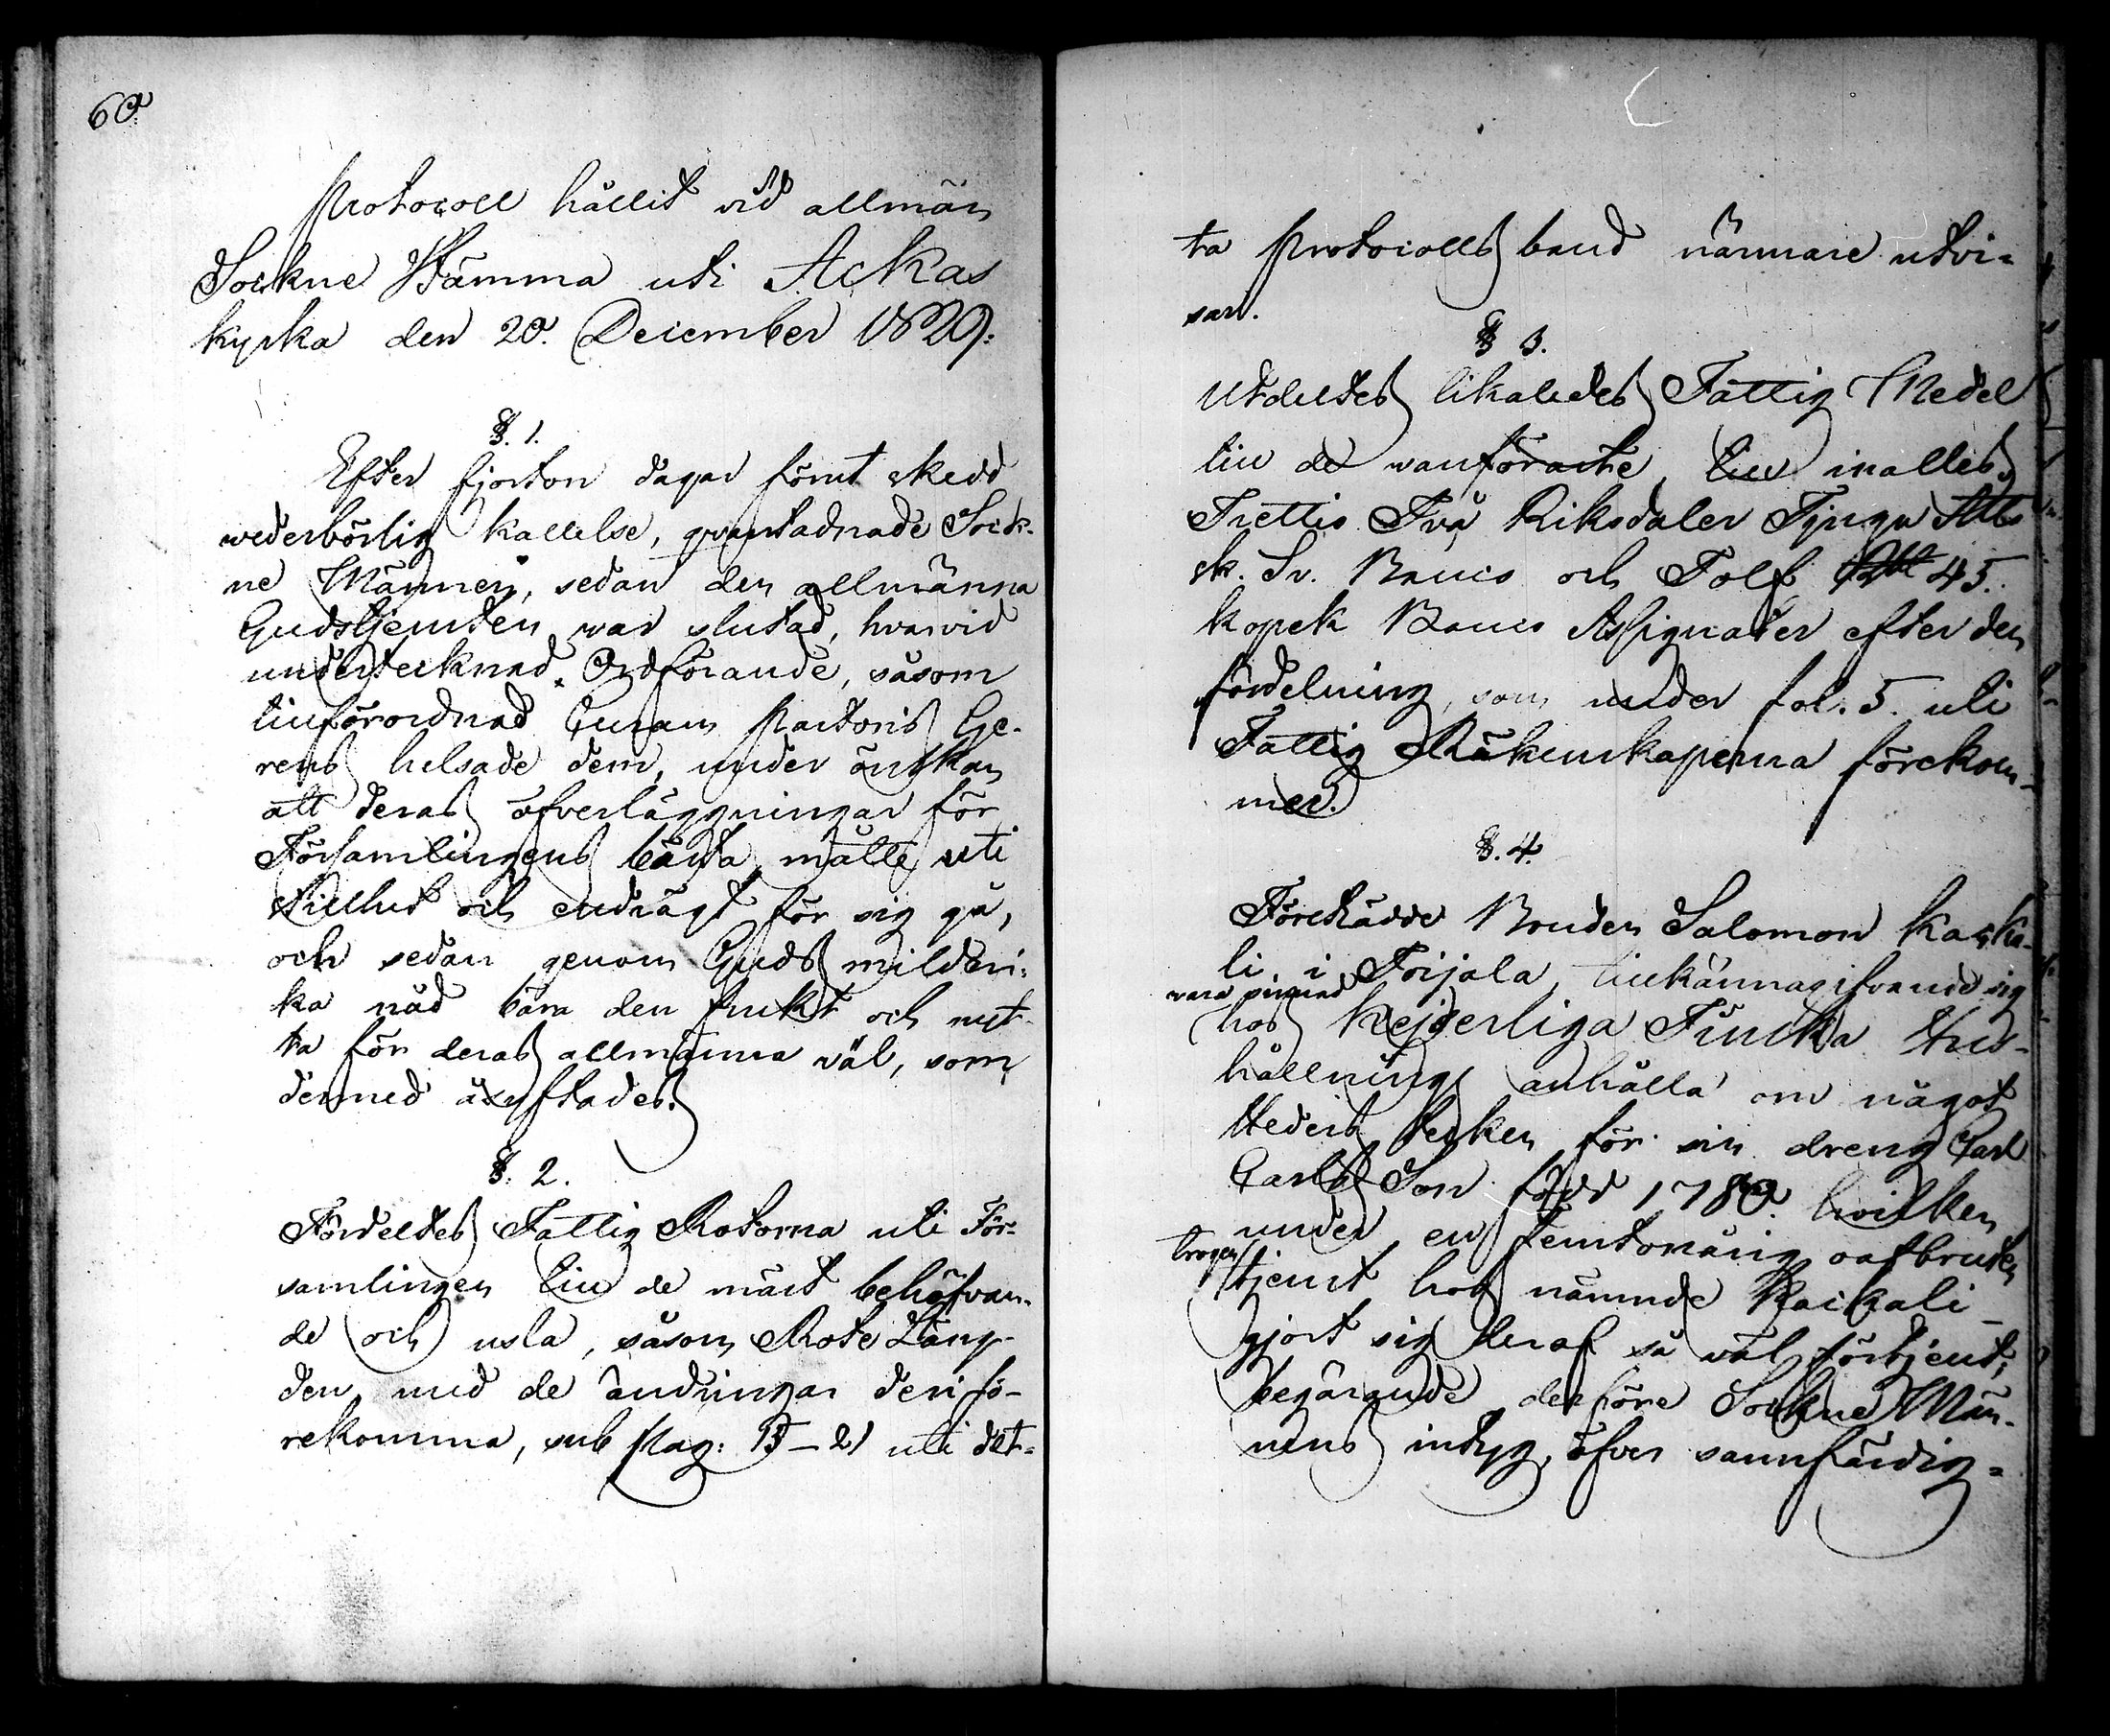 60
Protocoll hållit vid allmän
Sockne Stämma uti Ackas
kyrka den 20. December 1829:
§. 1.
Efter fjorton dagar förut skedd
wederbörlig kallelse, qvarstadnade Sock-
ne Männen, sedan den allmänna
Gudstjensten war slutad, hvarvid
undertecknad Ordförande, såsom
tillförordnad Curam Pastoris Ge-
rens helsade dem, under önskan
att deras öfverläggningar för
Församlingens bästa måtte uti
stillhet och endrägt för sig gå,
och sedan genom Guds milderi-
ka nåd bära den frukt och nyt-
ta för deras allmänna väl, som
dermed åsyftades.
§. 2.
Fördeltes Fattig Rotorna uti För-
samlingen till de mäst behöfvan-
de och usla, såsom Rote Läng-
den med de ändringar deri fö-
rekomma, sub Pag: 15-21 uti det-
ta Protocolls band närmare utvi-
sar.
§ 3.
Utdeltes likaledes Fattig Medel
till de wanförache, till inalles
Trettio Två Riksdaler Tjugu Åtta
sk. Sv. Banco och Tolf 45.
kopek Banco Assignater efter den
fördelning, som under fol. 5. uti
Fattig Räkenskaperna förekom-
mer.
§. 4.
Företrädde Bonden Salomon Kaska-
li i Toijala, tillkännagifvande sig
vara sinnad
hos Kejserliga Finska Hus-
hållnings anhålla om något
Heders tecken för sin dreng Carl
Carls Son född 1780. hvilken
under en femtonårig oafbruten
trogen
tjenst hos nämnde Kackali
gjort sig deraf så väl förtjent;
begärande derföre Sockne Män-
nens intyg, öfver sannfärdig-